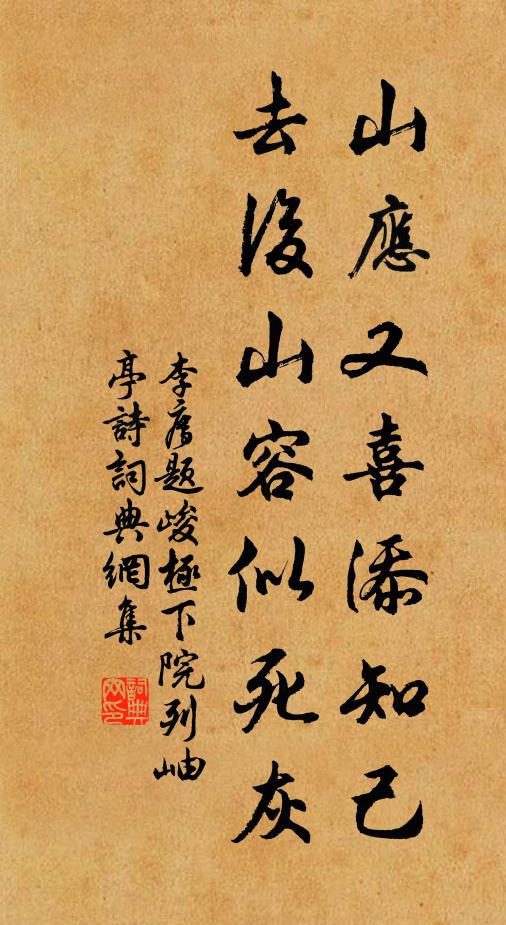 山應又喜添知己
去後山容似死灰
李廌題峻極下院列岫
亭詩詞典網集
詞典
網印